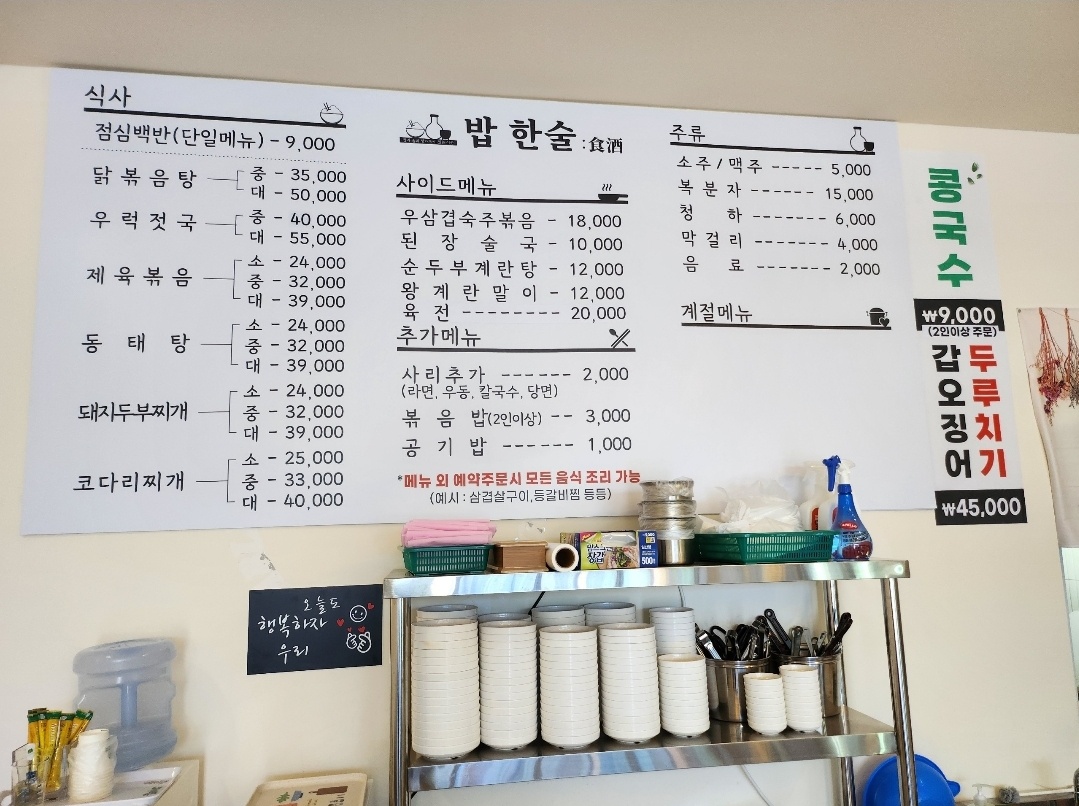 식사
점심백반(단일메뉴) - 9,000
닭볶음탕 중 - 35,000
대 - 50,000
우럭젓국 중 - 40,000
대 - 55,000
제육볶음 소 - 24,000
중 - 32,000
대 - 39,000
동태탕 소 - 24,000
중 - 32,000
대 - 39,000
돼지두부찌개 소 - 24,000
중 - 32,000
대 - 39,000
코다리찌개 소 - 25,000
중 - 33,000
대 - 40,000
밥 한술 :食酒
사이드메뉴
우삼겹숙주볶음 - 18,000
된장술국 - 10,000
순두부계란탕 - 12,000
왕계란말이 - 12,000
육전 --------- 20,000
추가메뉴
사리추가 ------ 2,000
(라면, 우동, 칼국수, 당면)
볶음밥(2인이상) -- 3,000
공기밥 ------ 1,000
*메뉴 외 예약주문시 모든 음식 조리 가능
(예시 : 삼겹살구이,등갈비찜 등등)
주류
소주/맥주 ----- 5,000
복분자 ------ 15,000
청하 ------ 6,000
막걸리 ------- 4,000
음료 ------- 2,000
계절메뉴
콩국수
₩9,000
(2인이상 주문)
갑오징어
두루치기
₩45,000
오늘도
행복하자
우리